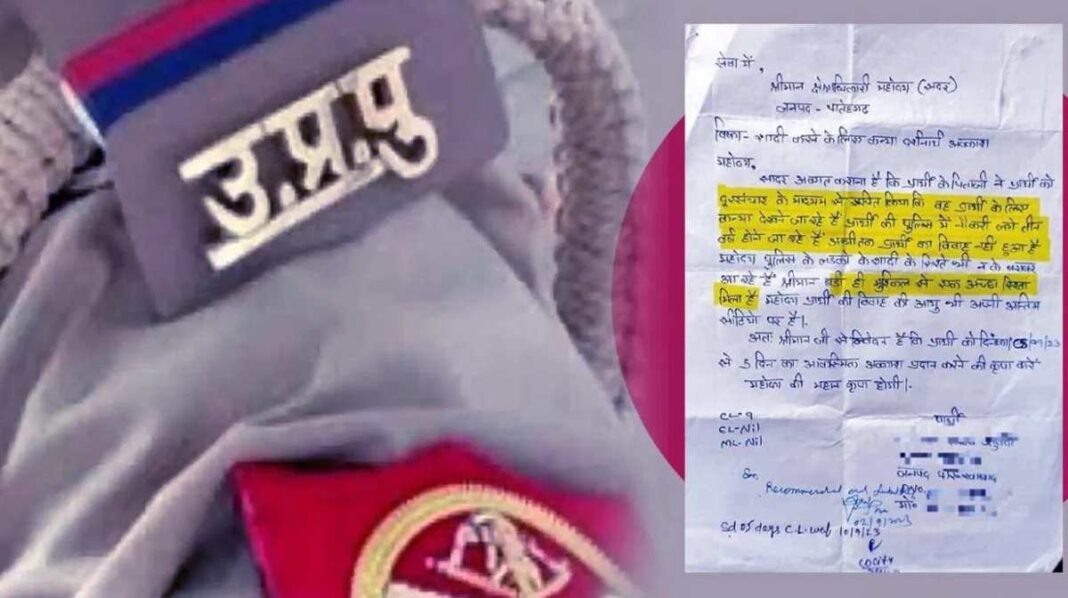 उ.प्र.पु
सेवा में,
श्रीमान क्षेत्राधिकारी महोदय (सदर)
जनपद - फतेहगढ
विषय- शादी करने के लिए कन्या अवकाश
महोदय,
सादर अवगत कराना है कि प्रार्थी के पिताजी ने प्रार्थी को
दूरसंचार के माध्यम से सूचित किया कि वह प्रार्थी के लिए
कन्या देखने जा रहे हैं प्रार्थी की पुलिस में नौकरी लगे तीन
वर्ष होने जा रहे हैं अभी तक प्रार्थी का विवाह नहीं हुआ है
महोदय पुलिस के लडकों के शादी के रिश्ते भी न के बराबर
आ रहे हैं श्रीमान बडी ही मुश्किल से एक अच्छा रिश्ता
मिला है महोदय प्रार्थी की विवाह की आयु भी अपनी अन्तिम
सीढियों पर है।.
अतः श्रीमान जी से निवेदन है कि प्रार्थी को दिनांक /23
से 5 दिन का अवकाश प्रदान करने की कृपा करें
महोदय की महान कृपा होगी।.
CL-9
CL-Nil
ML-Nil
प्रार्थी
जनपद
Sir,
Recommended and
मो०
02/9/2023
Sd 05 days C.L. wef 10/9/23
CO City